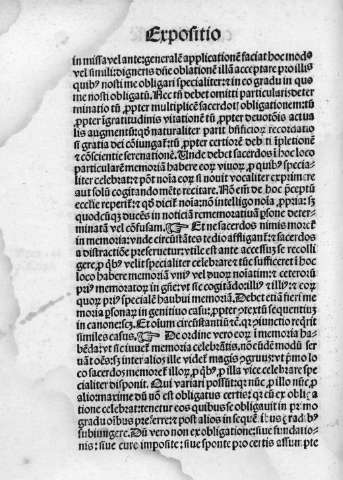 Expositio
in missa vel ante: generalē applicationē faciat hoc modo
vel simili: digneris dn̄e oblationē illā acceptare pro illis
quibꝰ nosti me obligari specialiter: ⁊ in eo gradu in quo
me nosti obligatū. Nec tn̄ debet omitti particularis deter
minatio tū ꝓpter multiplicē sacerdotꝭ obligationem: tū
ꝓpter īgratitudinis vitationē tū ꝓpter deuotiōis actua
lis augmentū: qd̓ naturaliter parit bn̄ficioꝝ recordatio
si gratia dei cōiungat᷑: tū ꝓpter certiorē debiti īpletionē
⁊ cōscientie serenationē. Unde debet sacerdos ī hoc loco
particularē memoriā habere eoꝝ viuoꝝ ꝓ quibꝰ specia-
liter celebrat: ⁊ pōt noīa eoꝝ si nouit vocaliter exprimere
aut solū cogitando mēte recitare. Nō em̄ de hoc p̄ceptū
ecclīe reperit᷑: ⁊ qd̓ dicit᷑ noīa: nō intelligo noīa ꝓpria: sꝫ
quodcūqꝫ ducēs in noticiā rememoratiuā ꝑsone deter-
minatā vel cōfusam. ☞ Et ne sacerdos nimis moret᷑
in memoria: vnde circūstātes tedio affligant᷑: ⁊ sacerdos
a distractiōe preseruetur: vtile est ante accessū se recolli
gere ꝓ qbꝰ velit specialiter celebrare: ⁊ tūc sufficeret ī hoc
loco habere memoriā vniꝰ vel duoꝝ noīatim: ⁊ ceteroꝝ
priꝰ memoratoꝝ in gn̄e: vt sic cogitādo: illiꝰ ⁊ illiꝰ: ⁊ eoꝝ
quoꝝ priꝰ specialē habui memoriā. Debet etiā fieri me
moria ꝑsonaꝝ in genitiuo casu: ꝓpter textū sequentiū
in canone: sꝫ. Et oīum circūstantiū ⁊c̄. qꝛ ↄiunctio reqrit
similes casus. ☞ De ordine vero eoꝝ ī memoria ha-
bēdaꝝ: vt sic iuuet᷑ memoria celebrātis. nō eūdē modū ser
uāt oēs: sꝫ inter alios ille videt᷑ magis ↄgruus: vt p̄mo lo
co sacerdos memoret᷑ illoꝝ ꝓ qbꝰ ꝓ illa vice celebrare spe
cialiter disponit. Qui variari possūt: qꝛ nūc ꝓ illo nūc ꝓ
alio: maxime dū nō est obligatus certis: qꝛ cū ex oblig a
tione celebrat: tenetur eos quibus se obligauit in primo
gradu oībus preferre: ⁊ post alios in sequētibus gradibꝰ
subiungere. Dū vero non ex obligatione: siue fundatio-
nis: siue cure imposite: siue sponte pro certis assumpte